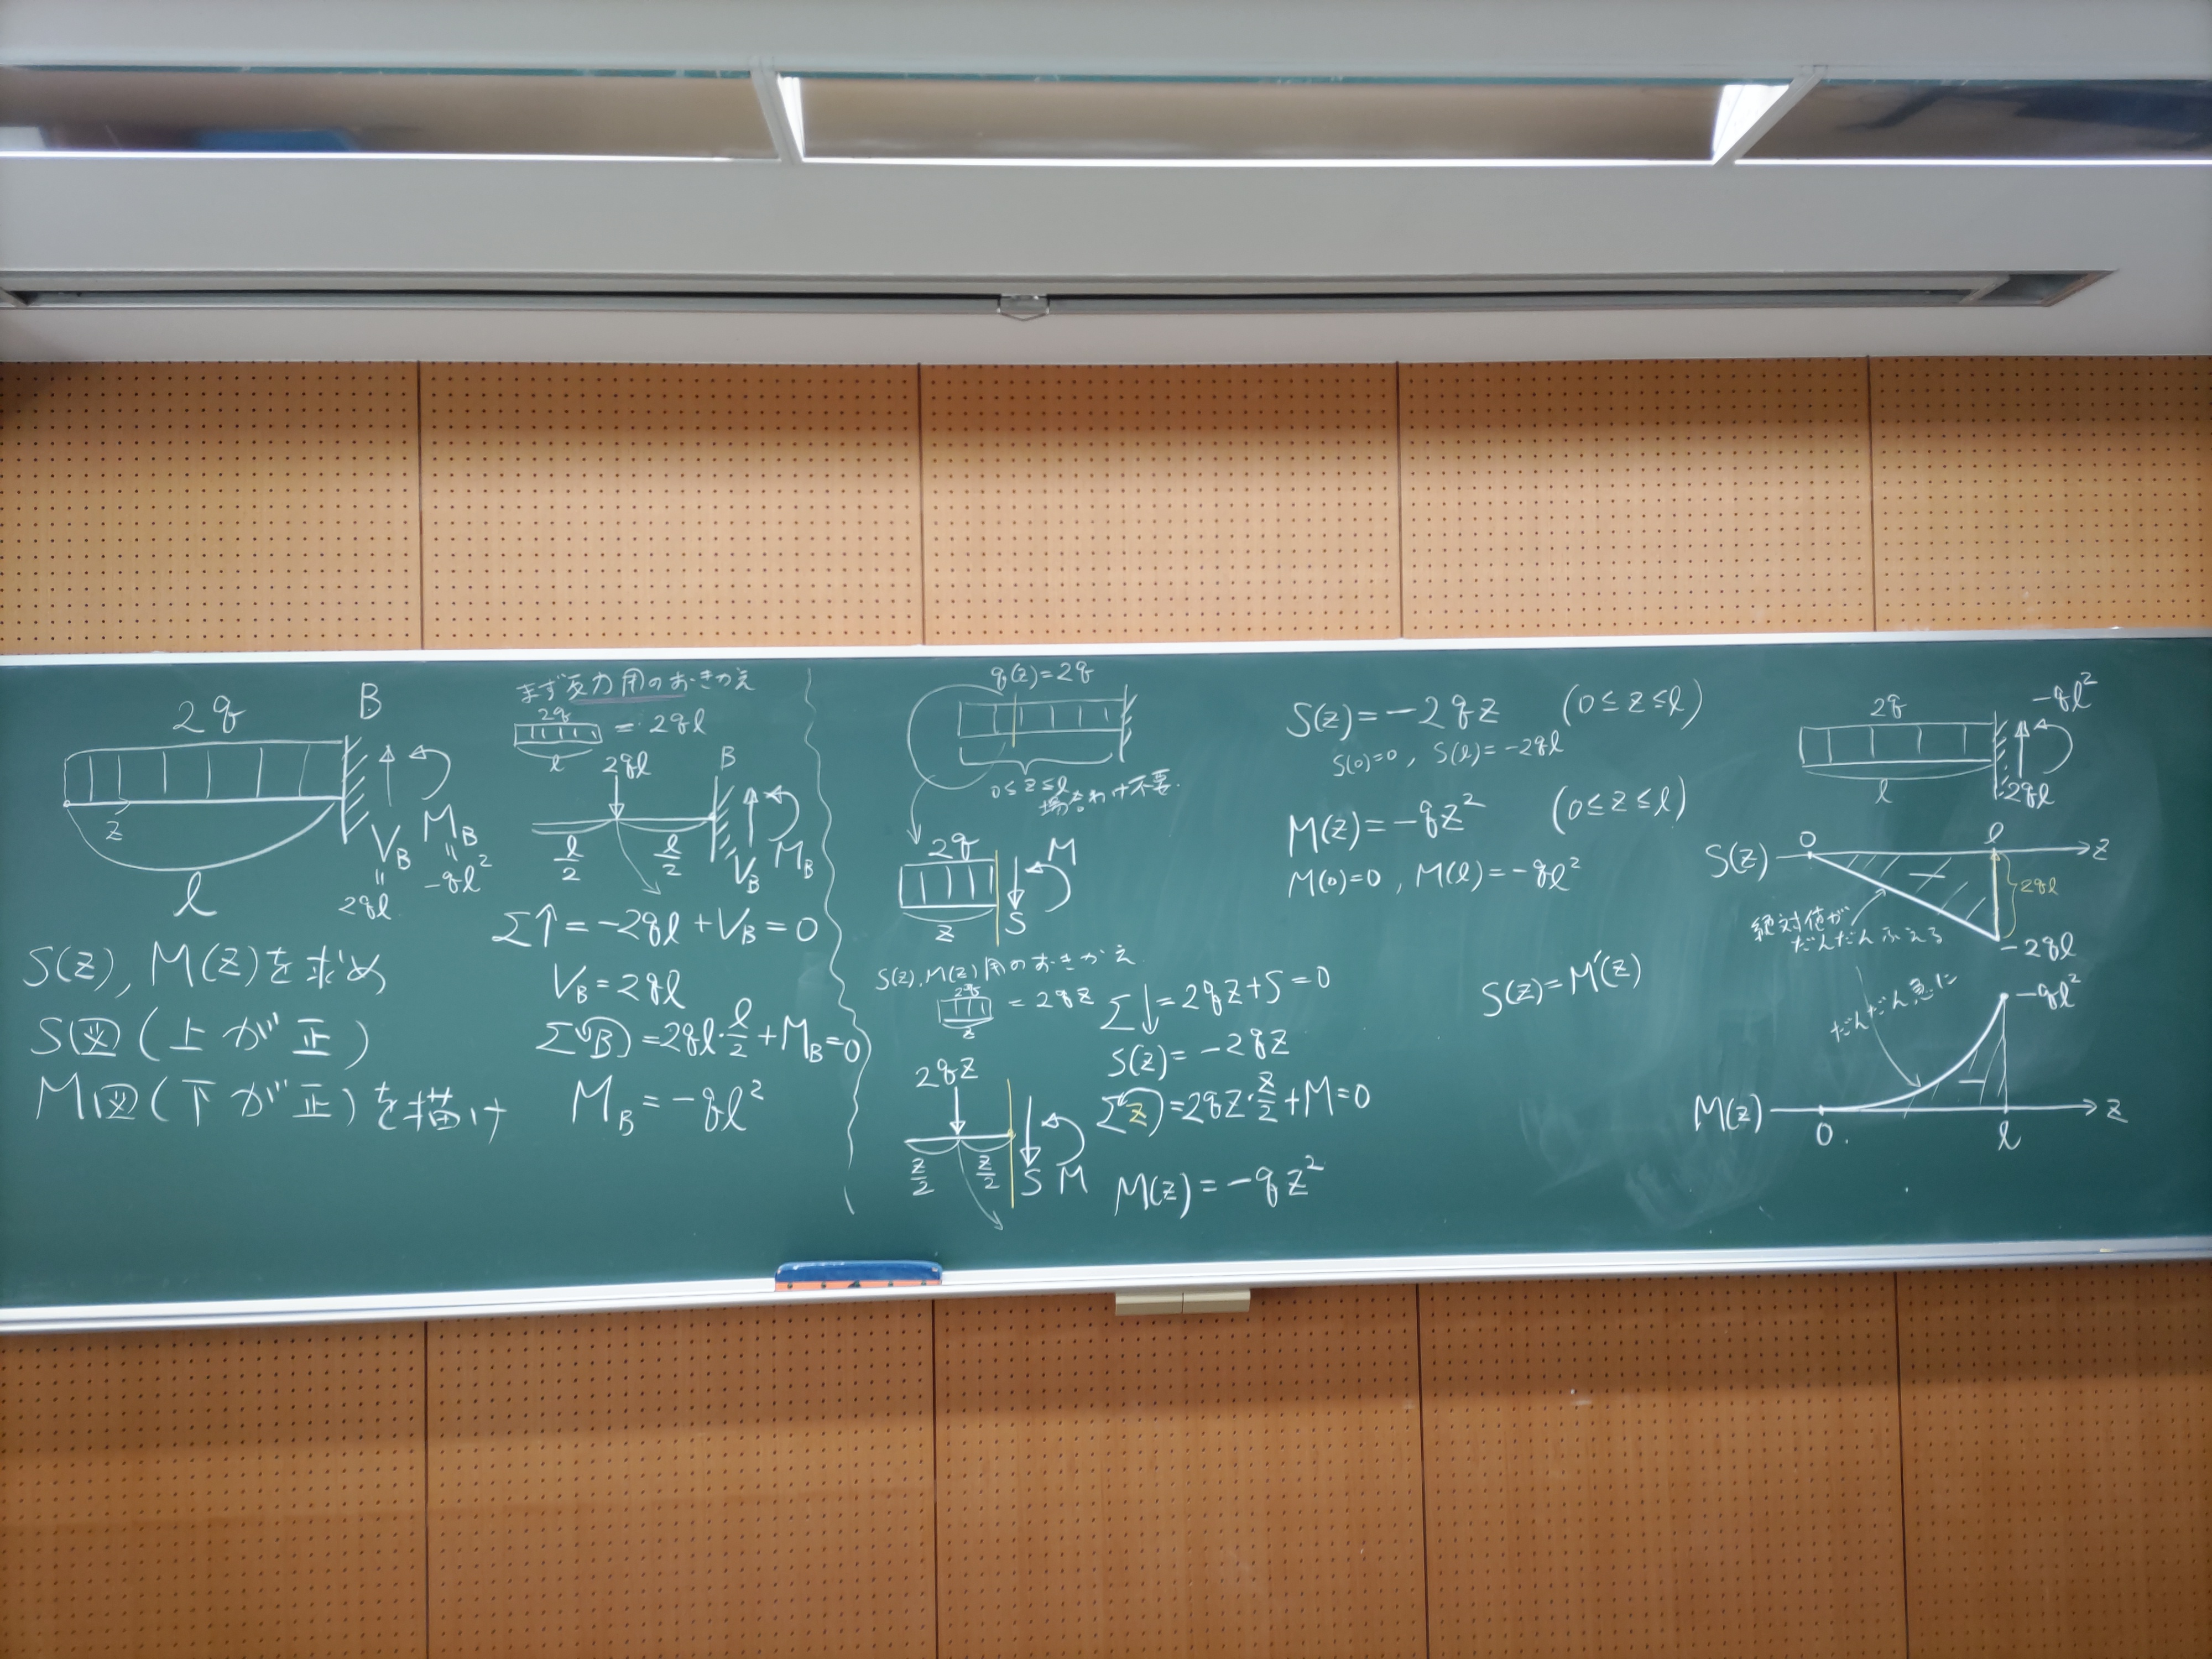 2q
B
z
l
V_B
M_B
=
2ql
=
-ql²
S(z), M(z)を求め
S図(上が正)
M図(下が正)を描け
まず反力用のおきかえ
2q
= 2ql
l
2ql
B
l/2
l/2
V_B
M_B
Σ↑=-2ql+V_B=0
V_B=2ql
ΣB)=2ql·l/2+M_B=0
M_B=-ql²
q(z)=2q
0≤z≤l
場合わけ不要.
2q
M
z
S
S(z), M(z)用のおきかえ
2q
= 2qz
z
Σ↓=2qz+S=0
S(z)=-2qz
2qz
z/2
z/2
S
M
Σz)=2qz·z/2+M=0
M(z)=-qz²
S(z)=-2qz (0≤z≤l)
S(0)=0, S(l)=-2ql
M(z)=-qz² (0≤z≤l)
M(0)=0, M(l)=-ql²
S(z)=M'(z)
2q
-ql²
l
2ql
S(z)
0
l
z
2ql
絶対値が
だんだんふえる
-2ql
だんだん急に
-ql²
M(z)
0.
l
z